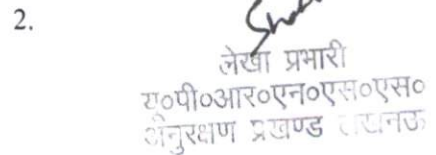 2.
लेखा प्रभारी
यू०पी०आर०एन०एस०एस०
अनुरक्षण प्रखण्ड लखनऊ